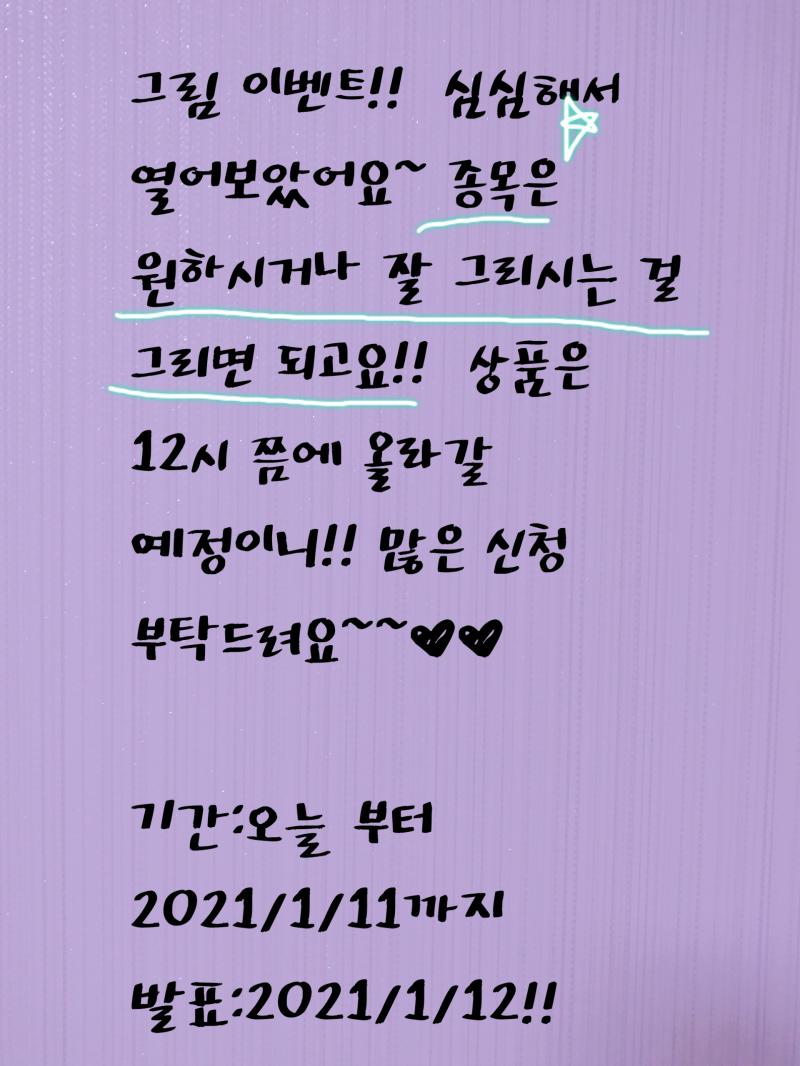 그림 이벤트!! 심심해서
열어보았어요~ 종목은
원하시거나 잘 그리시는 걸
그리면 되고요!! 상품은
12시 쯤에 올라갈
예정이니!! 많은 신청
부탁드려요~~♥♥
기간:오늘 부터
2021/1/11까지
발표:2021/1/12!!